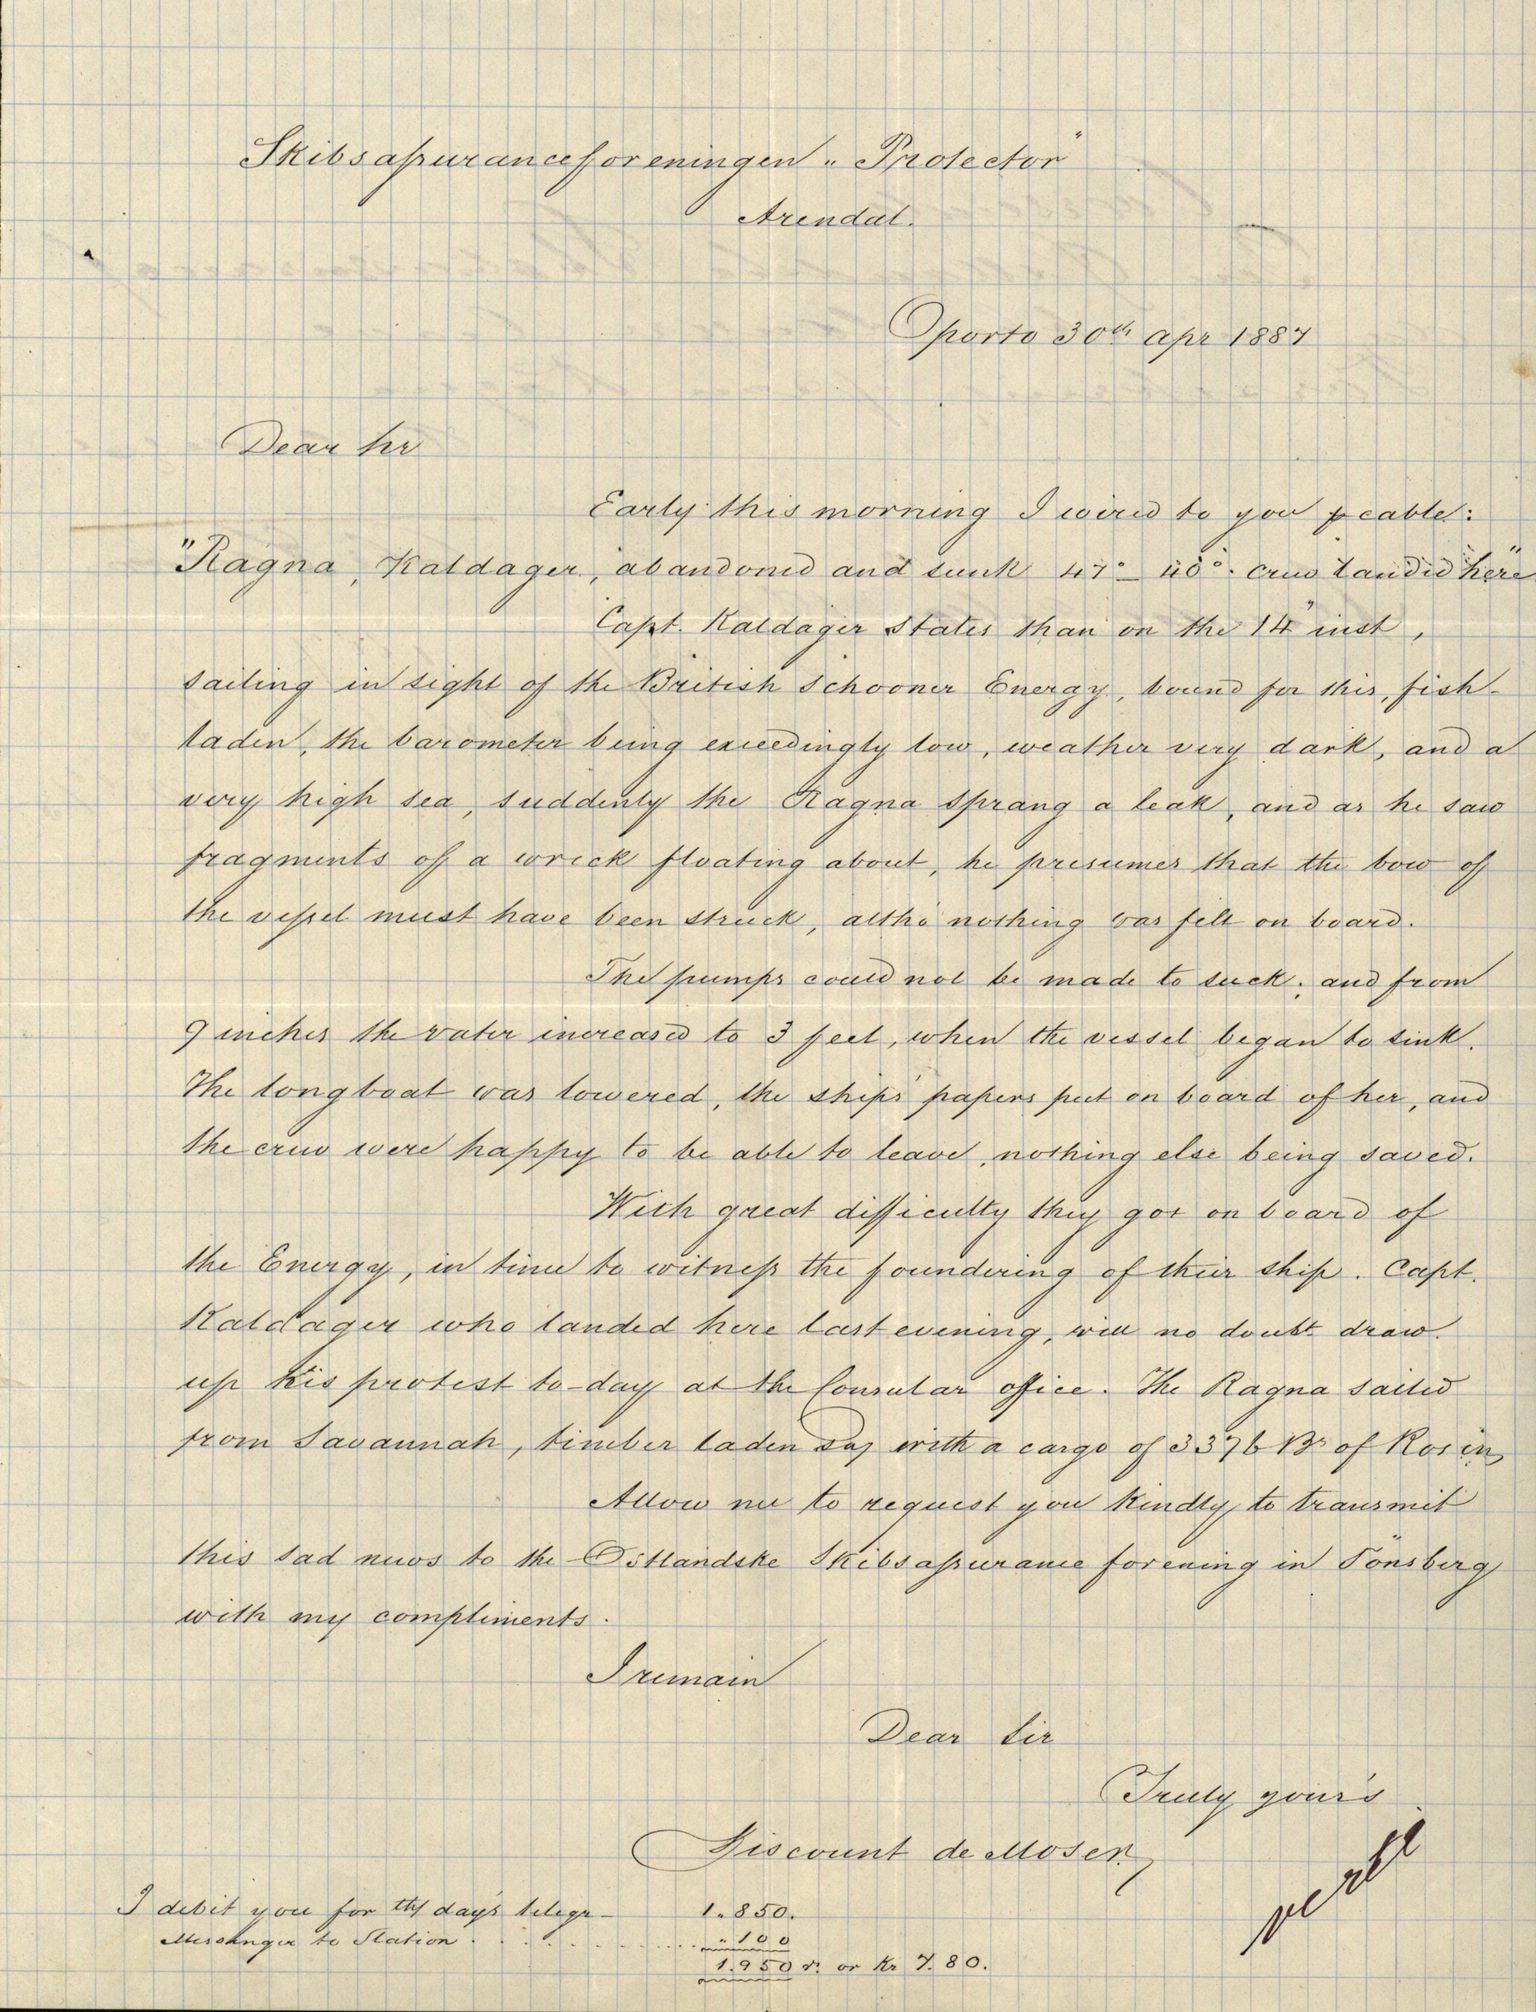 Skibsassuranceforeningen „Protector"
Arendal.
Oporto 30th Apr 1887
Dear Sir
Early this morning I wired to you p cable:
"Ragna, Kaldager, abandoned and sunk 47°– 40°. crew landed here"
Capt. Kaldager states than on the 14" inst,
sailing in sight of the British Schooner Energy, bound for this, fish-
laden, the barometer being exceedingly low, weather very dark, and a
very high sea, suddenly the Ragna sprang a leak, and as he saw
fragments of a wreck floating about, he presumes that the bow of
the vessel must have been struck, altho' nothing was felt on board.
The pumps could not be made to suck; and from
9 inches the water increased to 3 feet, when the vessel began to sink.
The longboat was lowered, the ships' papers put on board of her, and
the crew were happy to be able to leave, nothing else being saved.
With great difficulty they got on board of
the Energy, in time to witness the foundering of their ship. Capt.
Kaldager who landed here last evening, will no doubt draw
up his protest to-day at the Consular office. The Ragna sailed
from Savannah, timber laden say with a cargo of 3376 Bs of Rosin,
Allow me to request you kindly to transmit
this sad news to the Östlandske Skibsassurance forening in Tönsberg
with my compliments.
I remain
Dear Sir
Truly your's
Viscount de Moser,
I debit you for this day's telegr – 1.850.
Messenger to Station . . . . . . . . . . . „ 100
1.950 rs. or Kr 7.80.